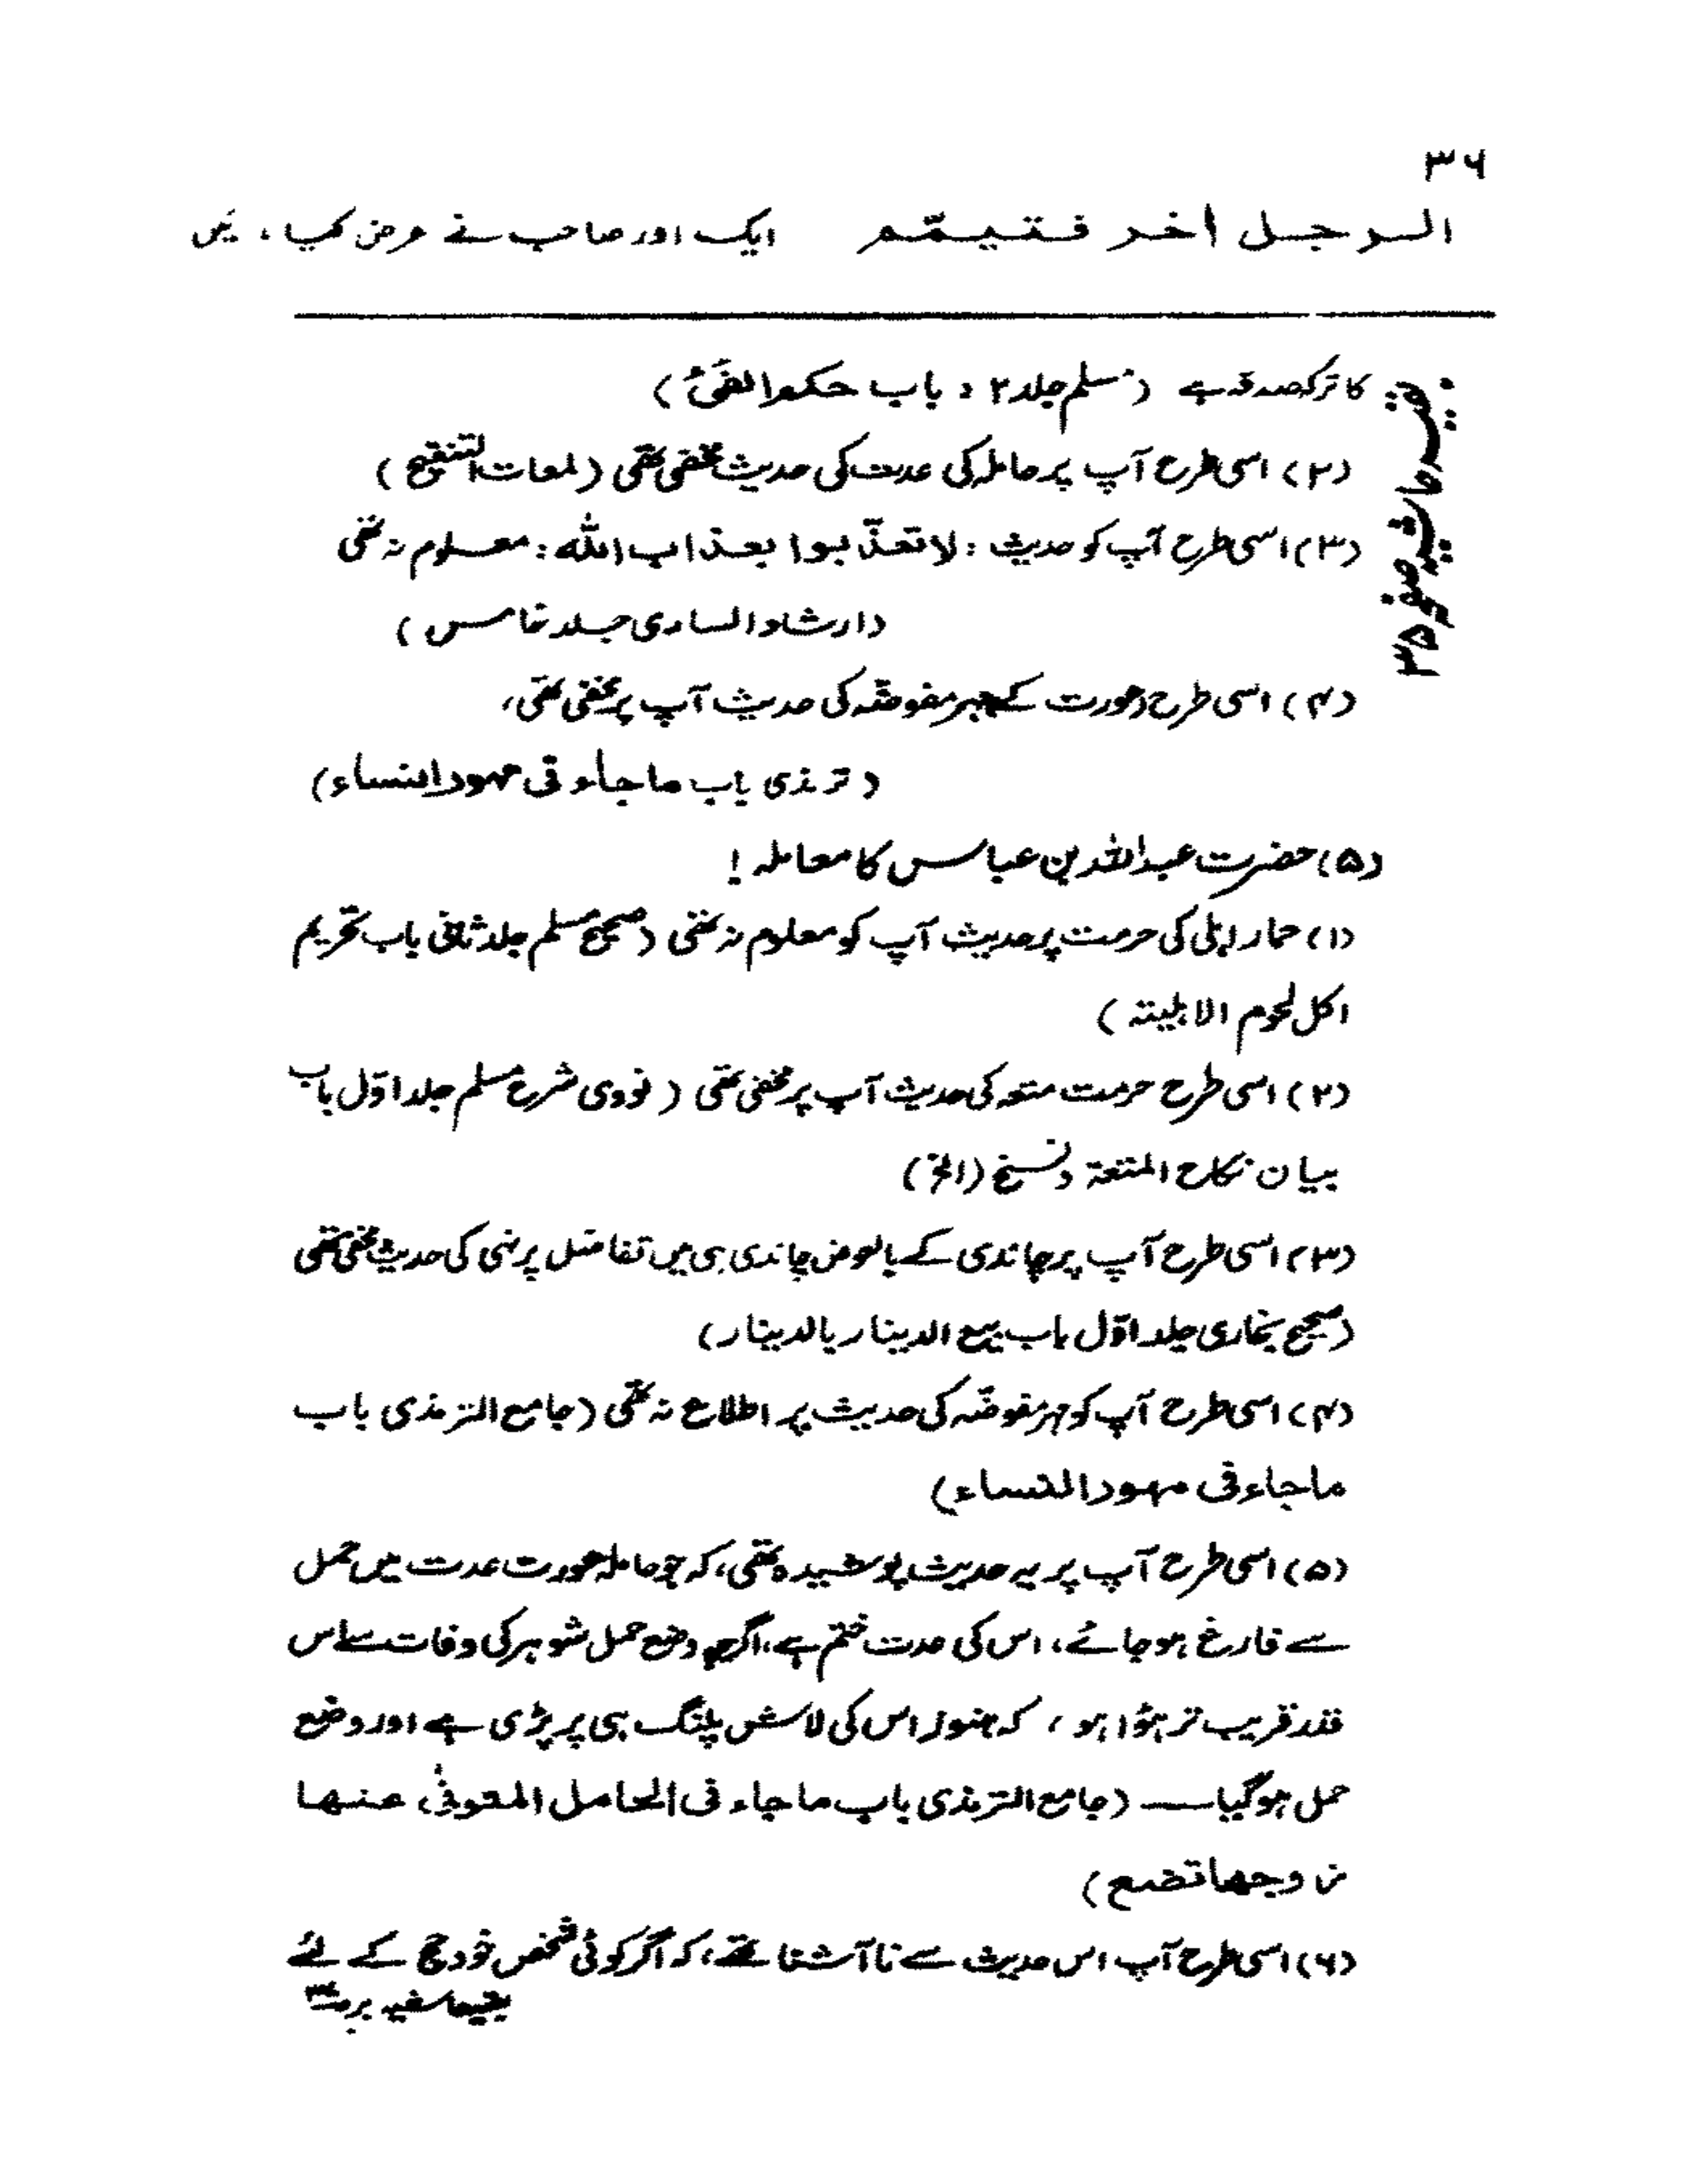 ۳۶
الرجل اخر فتیمّم ایک اور صاحب نے عرض کیا، میں
بقیہ حاشیہ صفحہ ۳۵
کا ترکہ صدقہ ہے (مسلم جلد ۲، باب حکم الفئ)
(۲) اسی طرح آپ پر حاملہ کی عدت کی حدیث مخفی تھی (لمعات التنقیح)
(۳) اسی طرح آپ کو حدیث: لا تعذّبوا بعذاب اللہ: معلوم نہ تھی
(ارشاد الساری جلد خامس)
(۴) اسی طرح عورت کے مہر مفوضّہ کی حدیث آپ پر مخفی تھی،
(ترمذی باب ماجاء فی مہور النساء)
(۵) حضرت عبداللہ بن عباس کا معاملہ!
(۱) حمار اہلی کی حرمت پر حدیث آپ کو معلوم نہ تھی (صحیح مسلم جلد ثانی باب تحریم
اکل لحوم الاہلیتہ)
(۲) اسی طرح حرمت متعہ کی حدیث آپ پر مخفی تھی (نووی شرح مسلم جلد اوّل باب
بیان نکاح المتعۃ ونسخ (الخ)
(۳) اسی طرح آپ پر چاندی کے بالعوض چاندی ہی میں تفاضل پر نہی کی حدیث مخفی تھی
(صحیح بخاری جلد اوّل باب بیع الدینار بالدینار)
(۴) اسی طرح آپ کو مہر مفوضّہ کی حدیث پر اطلاع نہ تھی (جامع الترمذی باب
ماجاء فی مہور النساء)
(۵) اسی طرح آپ پر یہ حدیث پوشیدہ تھی، کہ جو حاملہ عورت عدت میں حمل
سے فارغ ہو جائے، اس کی عدت ختم ہے، اگرچہ وضع حمل شوہر کی وفات سے اس
قدر قریب تر ہؤا ہو، کہ ہنوز اس کی لاش پلنگ ہی پر پڑی ہے اور وضع
حمل ہو گیا — (جامع الترمذی باب ماجاء فی الحامل المتوفیٰ عنہا
زوجھا تضع)
(۶) اسی طرح آپ اس حدیث سے نا آشنا تھے، کہ اگر کوئی شخص خود حج کے لئے
بقیہ حاشیہ بر